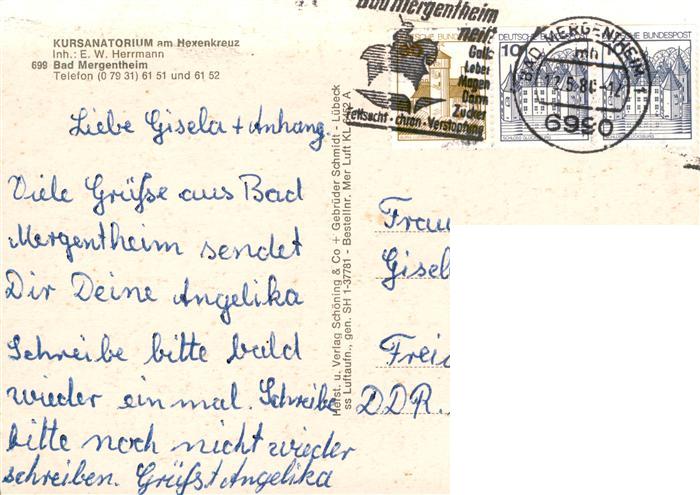 KURSANATORIUM am Hexenkreuz
Inh.: E. W. Herrmann
699 Bad Mergentheim
Telefon (0 79 31) 61 51 und 61 52
Liebe Gisela + Anhang.
Viele Grüße aus Bad
Mergentheim sendet
Dir Deine Angelika
Schreibe bitte bald
wieder ein mal. Schreibe
bitte noch nicht wieder
schreiben. Grüßt Angelika
Herst. u. Verlag Schöning & Co + Gebrüder Schmidt - Lübeck
ss Luftaufn., gen. SH 1-37781 - Bestellnr. Mer Luft KL A
Bad Mergentheim
Galle
Leber
Magen
Darm
Zucker
Fettsucht · chron. Verstopfung
DEUTSCHE BUNDESPOST
10
BUNDESPOST
BAD MERGENTHEIM 1
mh
6990
Frau
Gisel
Frei
DDR.